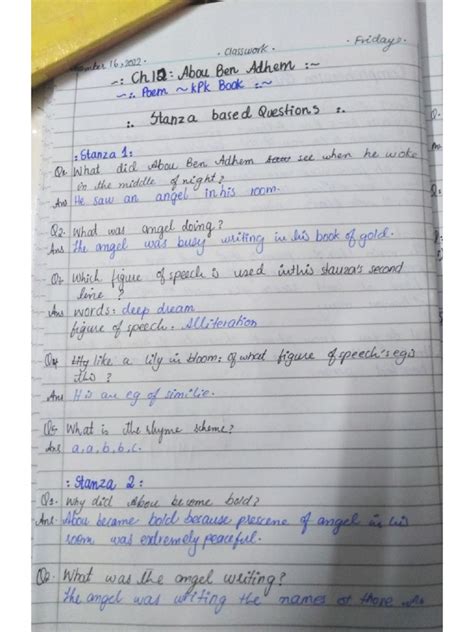 ember 16, 2022. . Classwork. . Fridays.
~: Ch.12: Abou Ben Adhem :~
~:. Poem ~ KPK Book :~
:. Stanza based Questions :.
: Stanza 1:
Q1. What did Abou Ben Adhem see when he woke
in the middle of night?
Ans He saw an angel in his room.
Q2. What was angel doing?
Ans The angel was busy writing in his book of gold.
Q3 Which figure of speech is used in this stanza's second
line ?
Ans words: deep dream
figure of speech. Alliteration
Q4 like a lily in bloom: of what figure of speech's eg is
this ?
Ans an eg of similie.
Q5 What is the rhyme scheme?
Ans a, a, b, b, c.
: Stanza 2 :
Q1. Why did Abou become bold?
Ans. Abou became bold because prescene of angel in his
room was extremely peaceful.
Q2. What was the angel writing?
The angel was writing the names of those